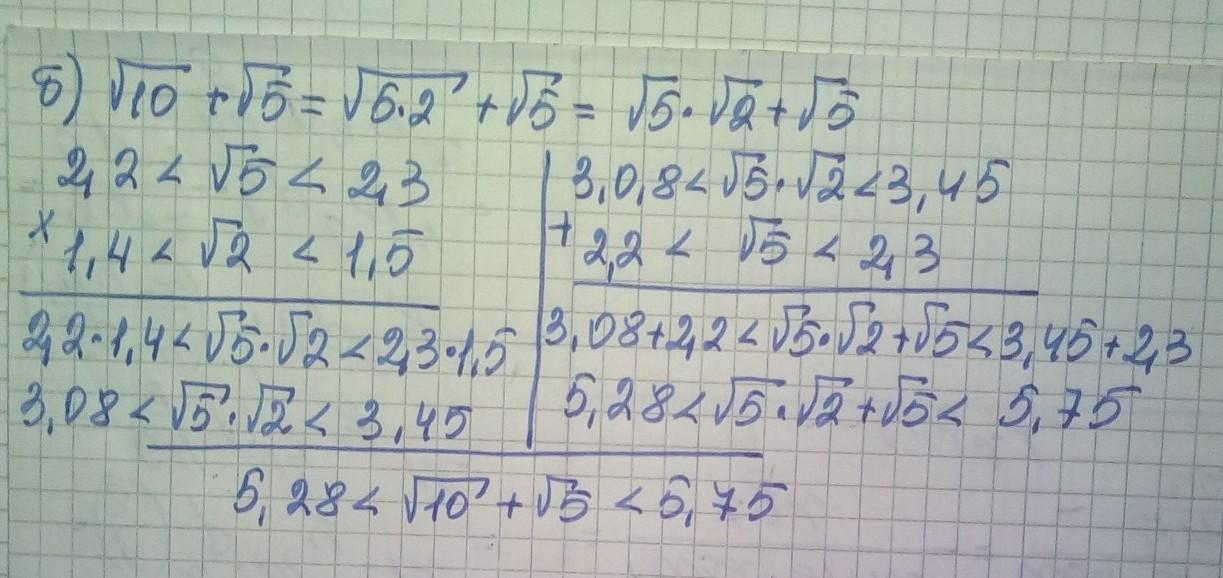 б) √10 + √5 = √5·2 + √5 = √5·√2 + √5
2,2 < √5 < 2,3
× 1,4 < √2 < 1,5
2,2·1,4 < √5·√2 < 2,3·1,5
3,08 < √5·√2 < 3,45
3,0,8 < √5·√2 < 3,45
+ 2,2 < √5 < 2,3
3,08+2,2 < √5·√2+√5 < 3,45+2,3
5,28 < √5·√2+√5 < 5,75
5,28 < √10 + √5 < 5,75